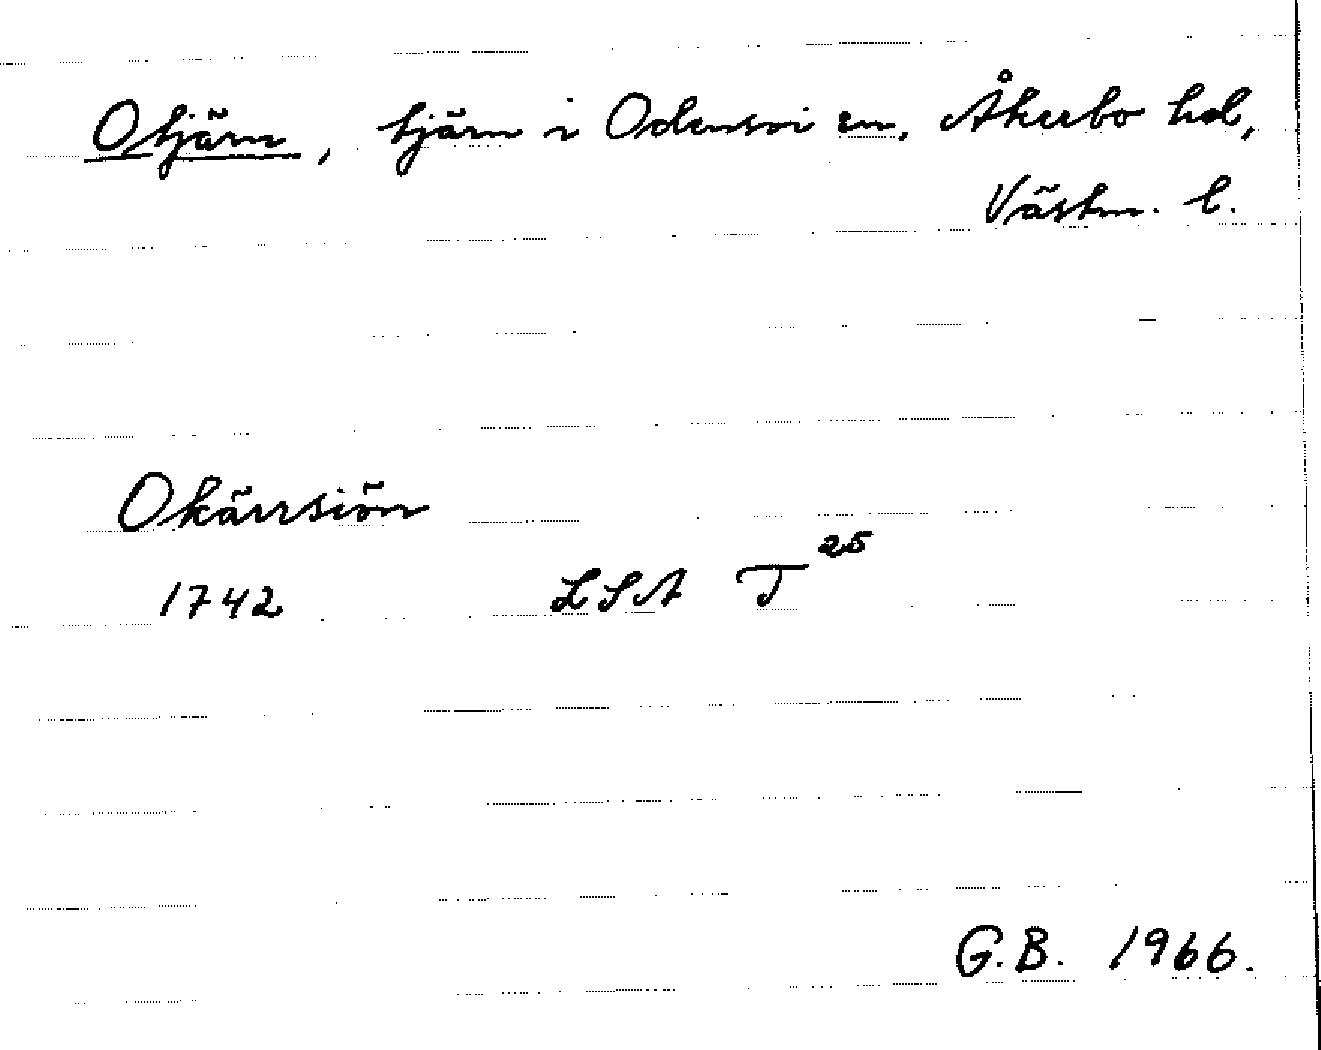 Otjärn, tjärn i Odensvi sn, Åkerbo hd,
Västm. l.
Okärrsiön
1742 LSA T 25
G.B. 1966.